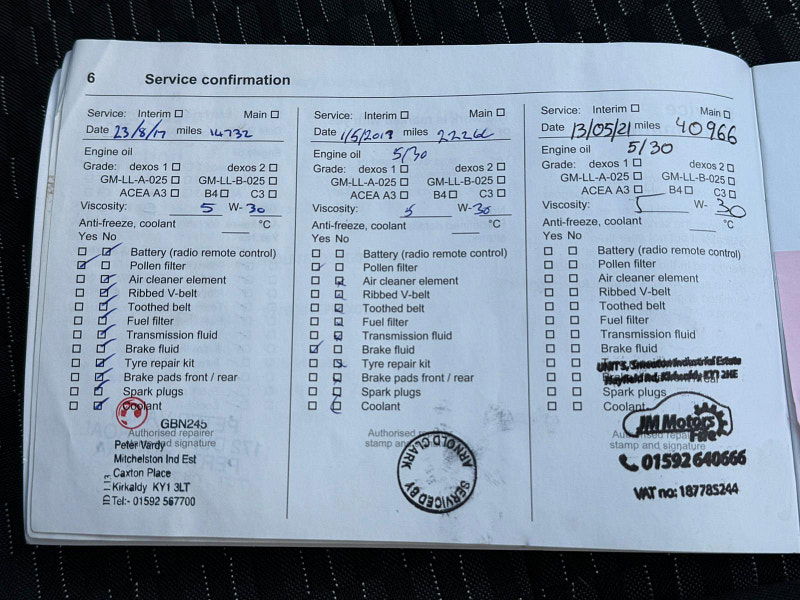 6 Service confirmation
Service: Interim Main
Date 23/8/17 miles 14732
Engine oil
Grade: dexos 1 dexos 2
GM-LL-A-025 GM-LL-B-025
ACEA A3 B4 C3
Viscosity: 5 W- 30
Anti-freeze, coolant °C
Yes No
Battery (radio remote control)
Pollen filter
Air cleaner element
Ribbed V-belt
Toothed belt
Fuel filter
Transmission fluid
Brake fluid
Tyre repair kit
Brake pads front / rear
Spark plugs
Coolant
GBN245
Authorised repairer
stamp and signature
Peter Vardy
Mitchelston Ind Est
Caxton Place
Kirkaldy KY1 3LT
Tel:- 01592 567700
Service: Interim Main
Date 1/5/2019 miles
Engine oil 5/30
Grade: dexos 1 dexos 2
GM-LL-A-025 GM-LL-B-025
ACEA A3 B4 C3
Viscosity: 5 W- 30
Anti-freeze, coolant °C
Yes No
Battery (radio remote control)
Pollen filter
Air cleaner element
Ribbed V-belt
Toothed belt
Fuel filter
Transmission fluid
Brake fluid
Tyre repair kit
Brake pads front / rear
Spark plugs
Coolant
Authorised
stamp and
SERVICED BY ARNOLD CLARK
Service: Interim Main
Date 13/05/21 miles 40966
Engine oil 5/30
Grade: dexos 1 dexos 2
GM-LL-A-025 GM-LL-B-025
ACEA A3 B4 C3
Viscosity: 5 W- 30
Anti-freeze, coolant °C
Yes No
Battery (radio remote control)
Pollen filter
Air cleaner element
Ribbed V-belt
Toothed belt
Fuel filter
Transmission fluid
Brake fluid
UNIT 5, Smeaton Industrial Estate
Hayfield Rd, Kirkcaldy KY1 2HE
Spark plugs
Coolant
JM Motors
Fife
stamp and signature
01592 640666
VAT no: 187785244